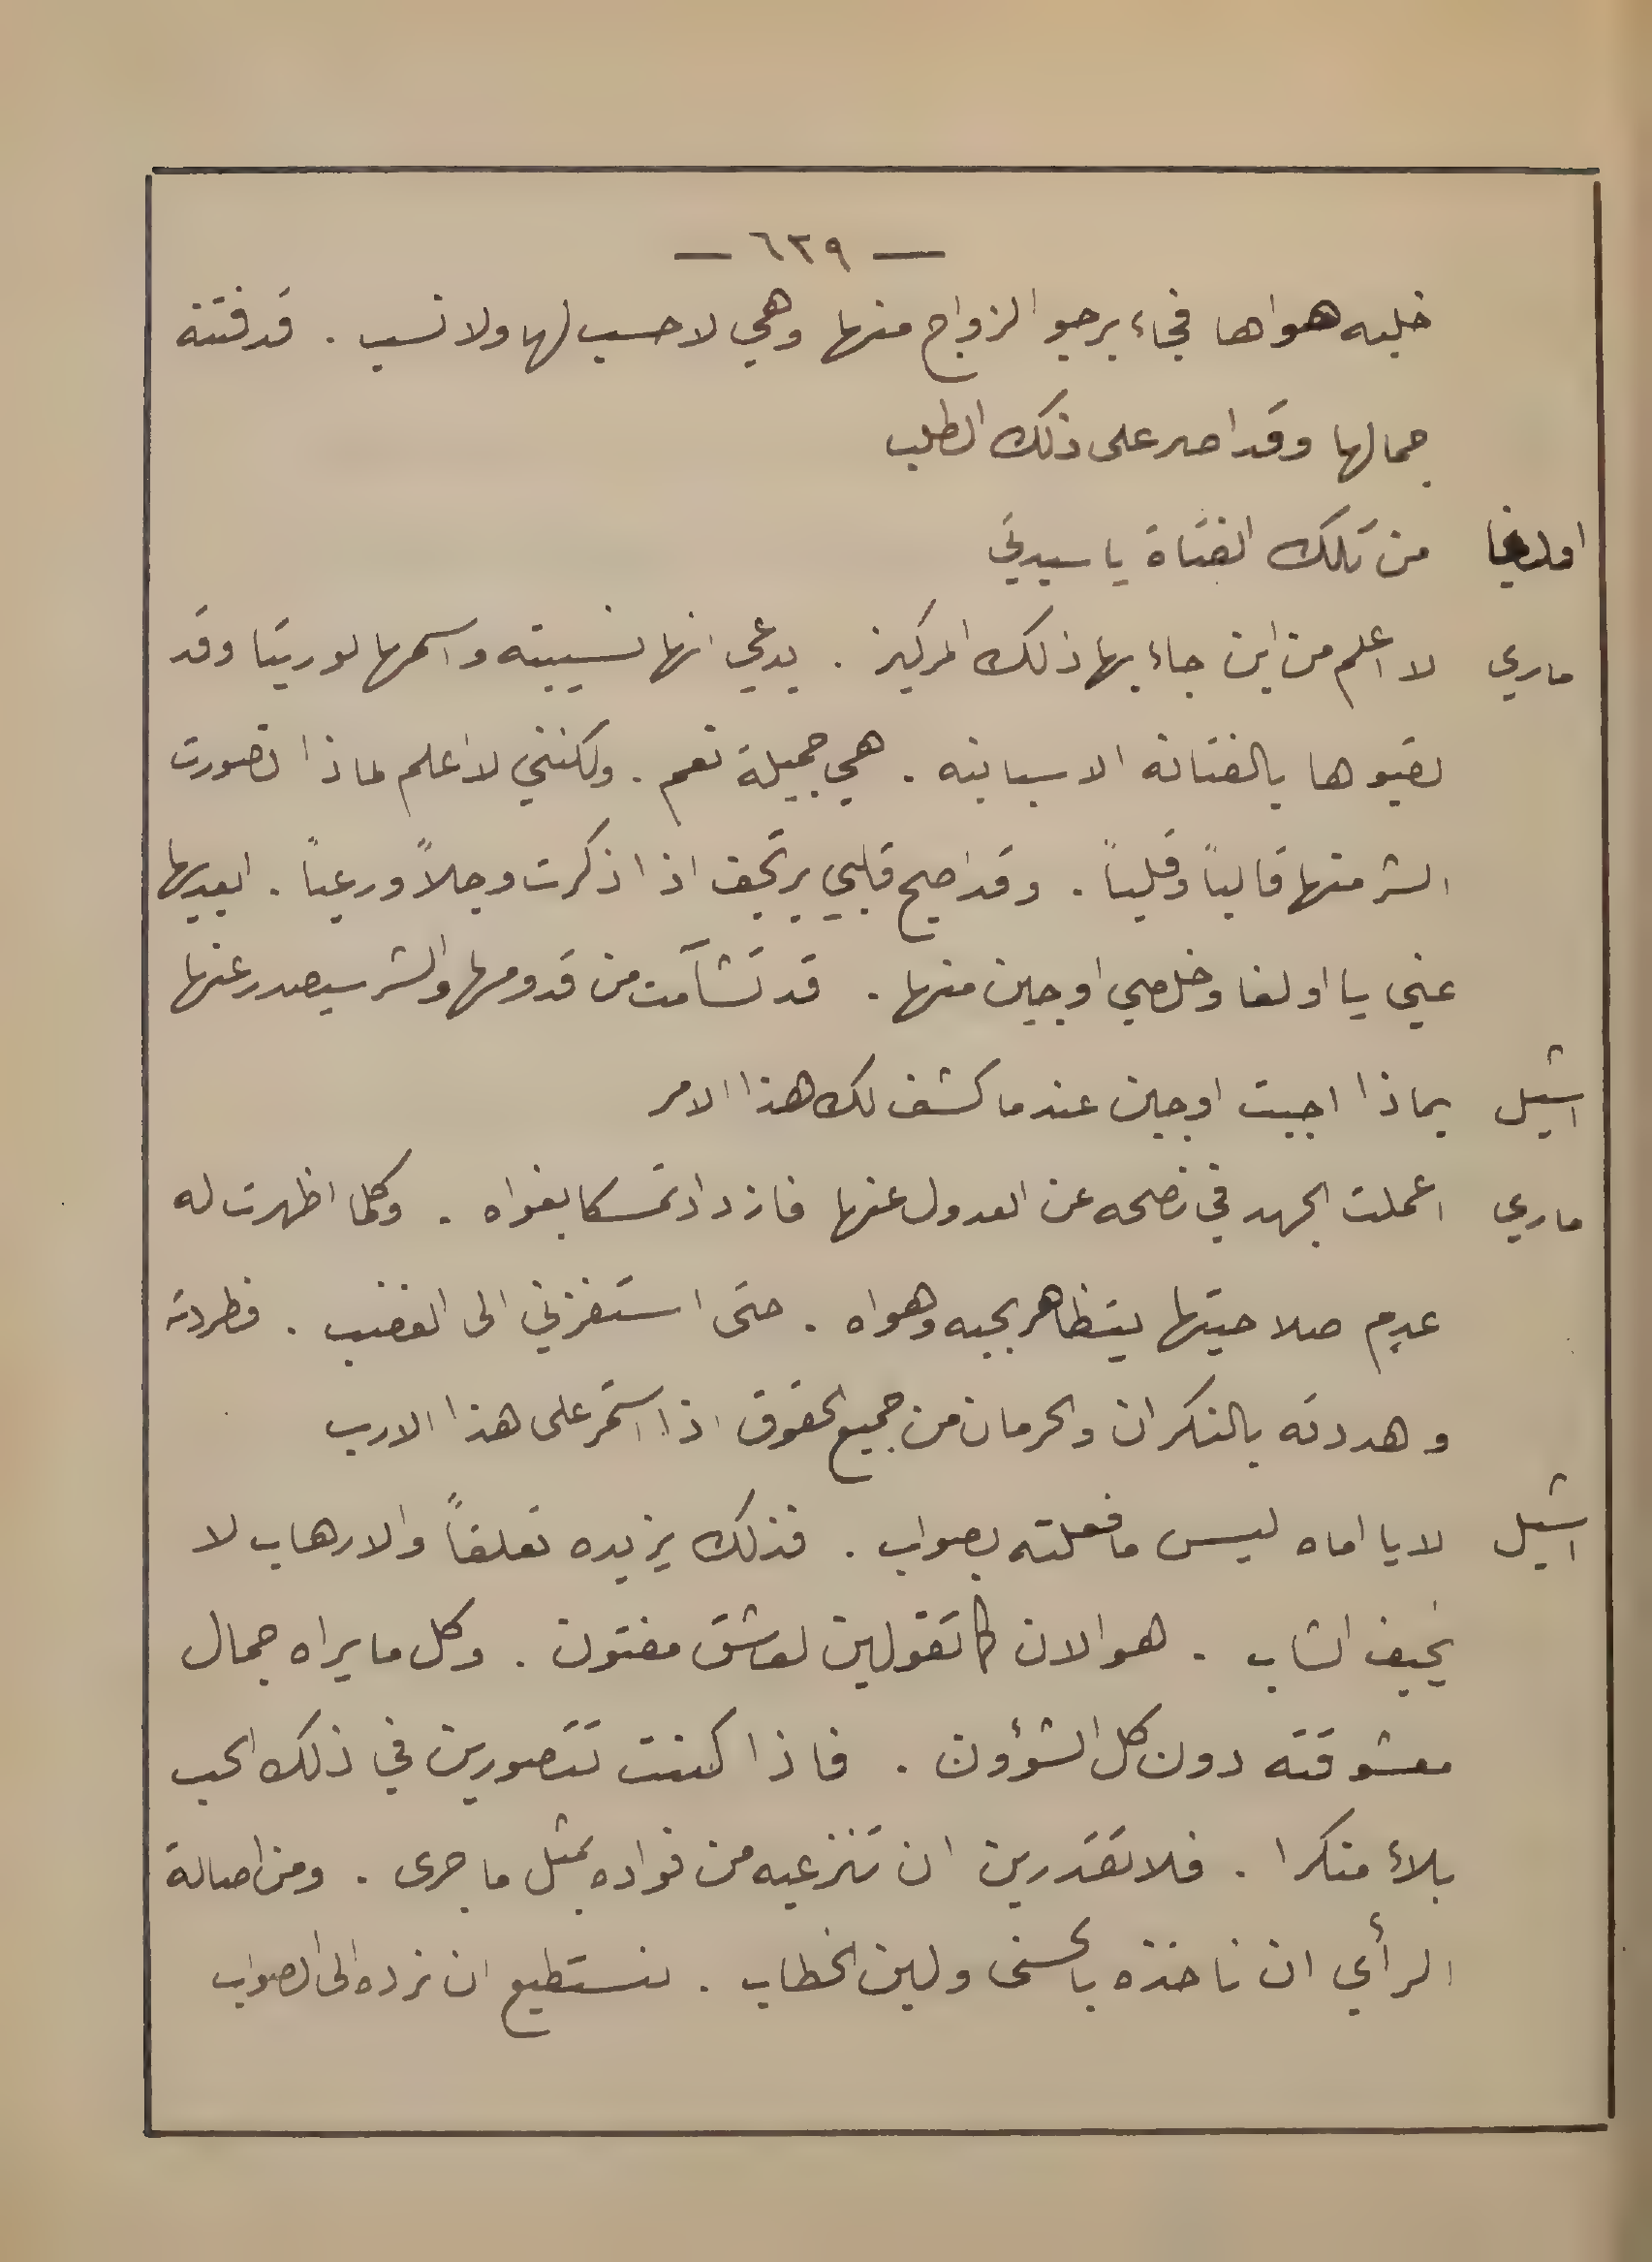 — ٦٢٩ —
خلبه هواها فجاء يرجو الزواج منها وهي لا حسب لها ولا نسب . قد فتنه
جمالها وقد اصر على ذلك الطلب
اولغا من تلك الفتاة يا سيدتي
ماري لا اعلم من اين جاء بها ذلك المركيز . يدعي انها نسيبته واسمها لوريتا وقد
لقبوها بالفتانة الاسبانية . هي جميلة نعم . ولكنني لا اعلم لماذا تصورت
الشر منها قالباً وقلباً . وقد اصبح قلبي يرتجف اذا ذكرت وجلاً ورعباً . ابعديها
عني يا اولغا وخلصي اوجين منها . قد تشآمت من قدومها والشر سيصدر عنها
اشيل بماذا اجبت اوجين عندما كشف لك هذا الامر
ماري اعملت الجهد في نصحه عن العدول عنها فازداد تمسكا بغواه . وكلما اظهرت له
عدم صلاحيتها يتظاهر بحبه وهواه . حتى استفزني الى الغضب . فطردته
وهددته بالنكران والحرمان من جميع الحقوق اذا استمر على هذا الارب
اشيل لا يا اماه ليس ما فعلته بصواب . فذلك يزيده تعلقاً والارهاب لا
يخيف الشاب . هو الان كما تقولين لعاشق مفتون . وكل ما يراه جمال
معشوقته دون كل الشؤون . فاذا كنت تتصورين في ذلك الحب
بلاء منكرا . فلا تقدرين ان تنزعيه من فواده بمثل ما جرى . ومن اصالة
الرأي ان ناخذه بالحسنى ولين الخطاب . لنستطيع ان نرده الى الصواب